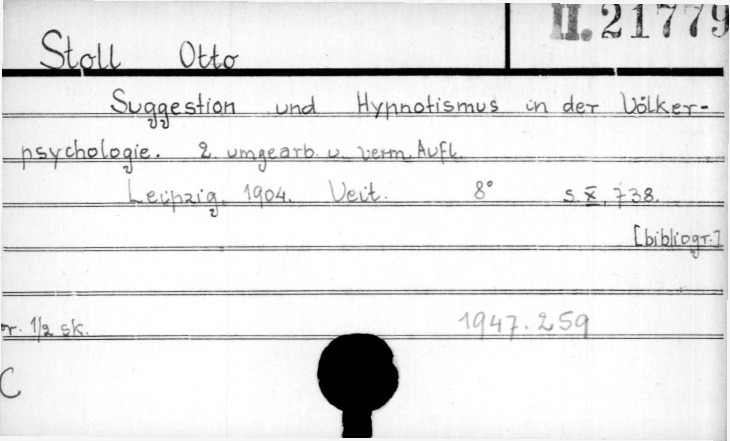 II. 21779
Stoll Otto
Suggestion und Hypnotismus in der Völker-
psychologie. 2. umgearb. u. verm. Aufl.
Leipzig. 1904. Veit. 8° S. X, 738.
[bibliogr.]
or. 1/2 sk. 1947.259
C